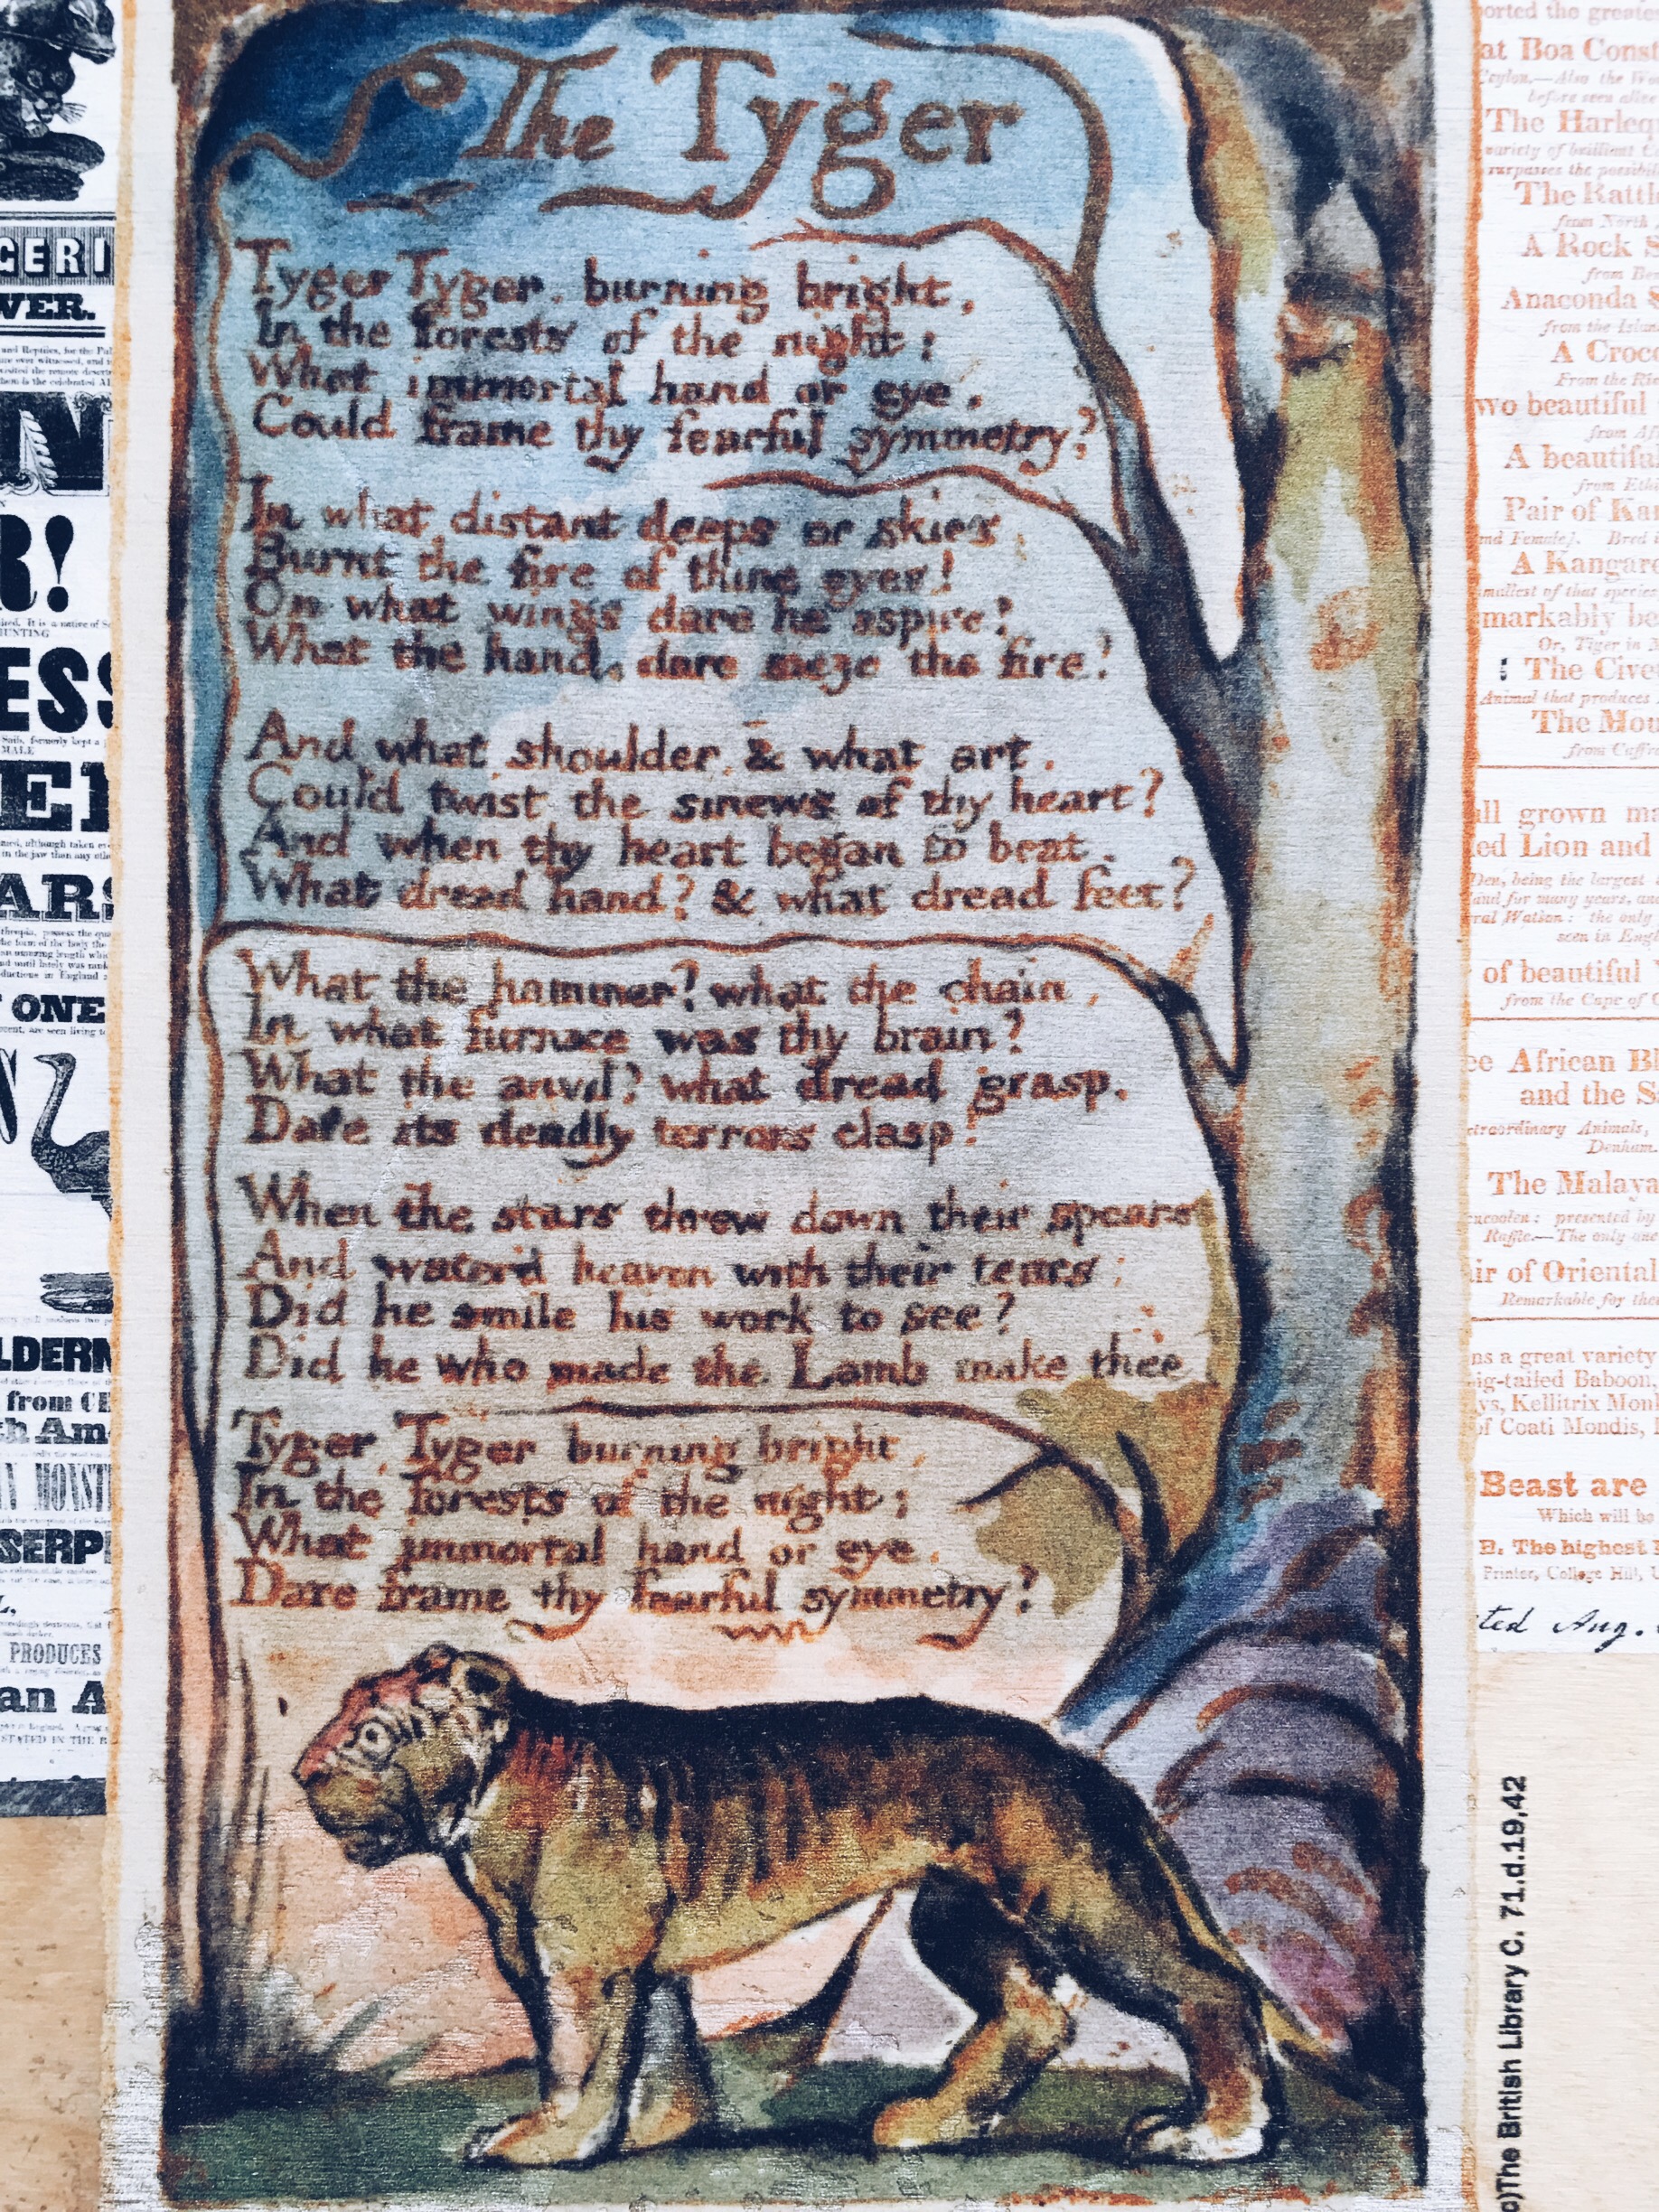 GERI
VER.
IN
R!
ESS
MALE
ARS
ONE
LDERN
from
th Am
SERP
PRODUCES
an A
The Tyger
Tyger Tyger, burning bright,
In the forests of the night;
What immortal hand or eye,
Could frame thy fearful symmetry?
In what distant deeps or skies,
Burnt the fire of thine eyes!
On what wings dare he aspire!
What the hand, dare sieze the fire!
And what shoulder, & what art,
Could twist the sinews of thy heart?
And when thy heart began to beat,
What dread hand? & what dread feet?
What the hammer? what the chain,
In what furnace was thy brain?
What the anvil? what dread grasp,
Dare its deadly terrors clasp!
When the stars threw down their spears
And water'd heaven with their tears:
Did he smile his work to see?
Did he who made the Lamb make thee
Tyger, Tyger burning bright,
In the forests of the night;
What immortal hand or eye,
Dare frame thy fearful symmetry?
orted the greates
at Boa Const
Ceylon.—Also the Wo
before seen alive
The Harleq
variety of brilliant C
surpasses the possibil
The Rattl
from North
A Rock S
from Ben
Anaconda S
from the Islan
A Croco
From the Riv
wo beautiful
from Af
A beautiful
from Ethi
Pair of Kan
nd Female]. Bred i
A Kangaro
mallest of that species
markably be
Or, Tiger in M
The Cive
Animal that produces
The Mou
from Caffra
ll grown ma
ed Lion and
Den, being the largest
and for many years, an
ral Watson: the only
seen in Engl
of beautiful
from the Cape of G
ee African Bl
and the S
traordinary Animals,
Denham.
The Malaya
ncoolen: presented by
Raffle.—The only one
ir of Oriental
Remarkable for the
ns a great variety
ig-tailed Baboon,
ys, Kellitrix Monk
of Coati Mondis,
Beast are
Which will be
B. The highest
Printer, College Hill,
ted Aug.
)The British Library C. 71.d.19,42